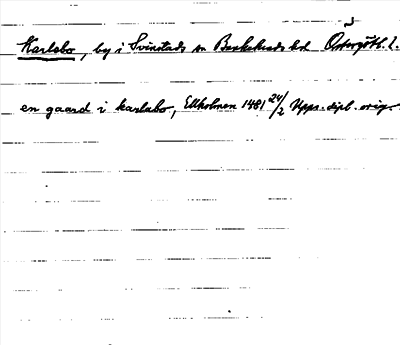 Karlabo, by i Svinstads sn Bankekinds hd Östergötl. l.
en gaard i karlabo, Ekholmen 1481 24/2 Upps. dipl. orig.